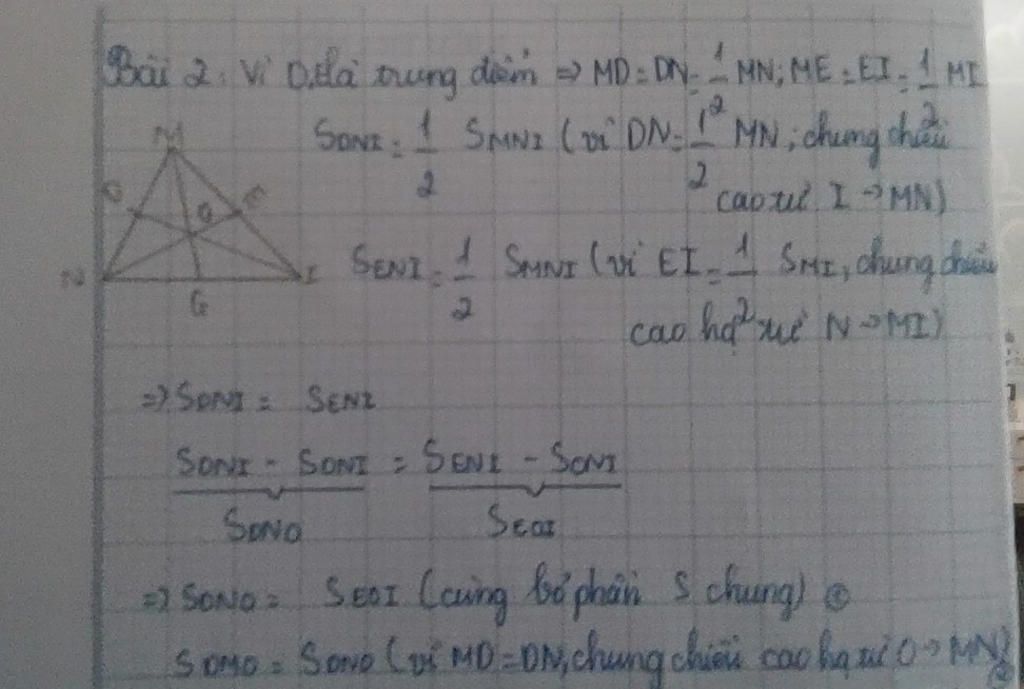 Bài 2: Vì D,E là trung điểm => MD = DN = 1/2 MN; ME = EI = 1/2 MI
M
SDNI = 1/2 SMNI (vì DN = 1/2 MN; chung chiều
cao từ I -> MN)
D
E
O
N
I
G
SENI = 1/2 SMNI (vì EI = 1/2 SMI, chung chiều
cao hạ từ N -> MI)
=> SDNI = SENI
SDNI - SONI = SENI - SONI
SDNO SEOI
=> SDNO = SEOI (cùng bớt phần S chung) ①
SDMO = SDNO (vì MD = DN, chung chiều cao hạ từ O -> MN) ②